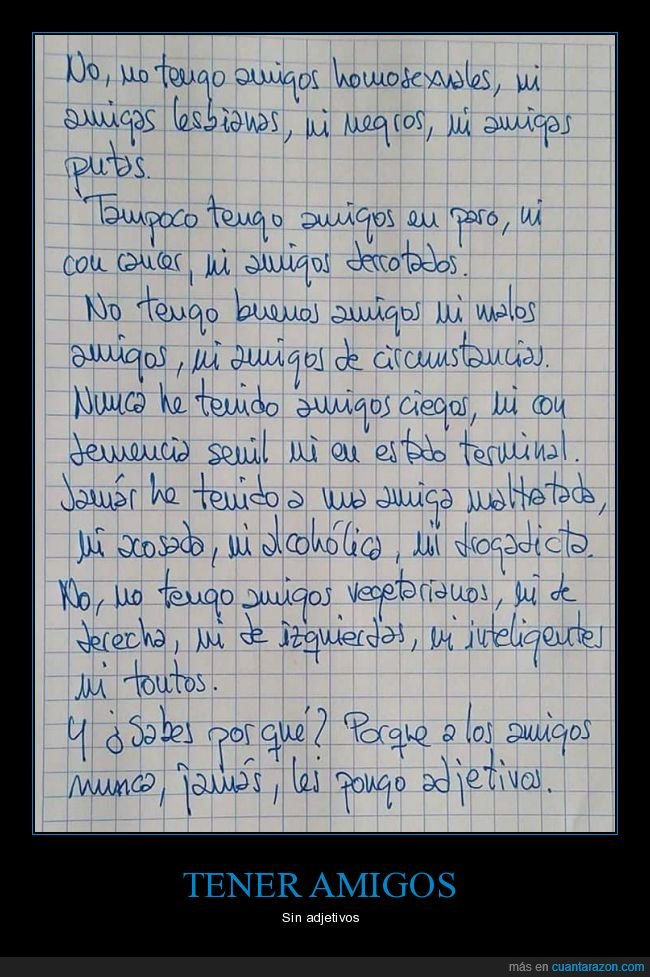 No, no tengo amigos homosexuales, ni
amigas lesbianas, ni negros, ni amigas
putas.
Tampoco tengo amigos en paro, ni
con cancer, ni amigos derrotados.
No tengo buenos amigos ni malos
amigos, ni amigos de circunstancias.
Nunca he tenido amigos ciegos, ni con
demencia senil ni en estado terminal.
Jamás he tenido a una amiga maltratada,
ni acosada, ni alcohólica, ni drogadicta.
No, no tengo amigos vegetarianos, ni de
derecha, ni de izquierdas, ni inteligentes
ni tontos.
Y ¿Sabes por qué? Porque a los amigos
nunca, jamás, les pongo adjetivos.
TENER AMIGOS
Sin adjetivos
más en cuantarazon.com